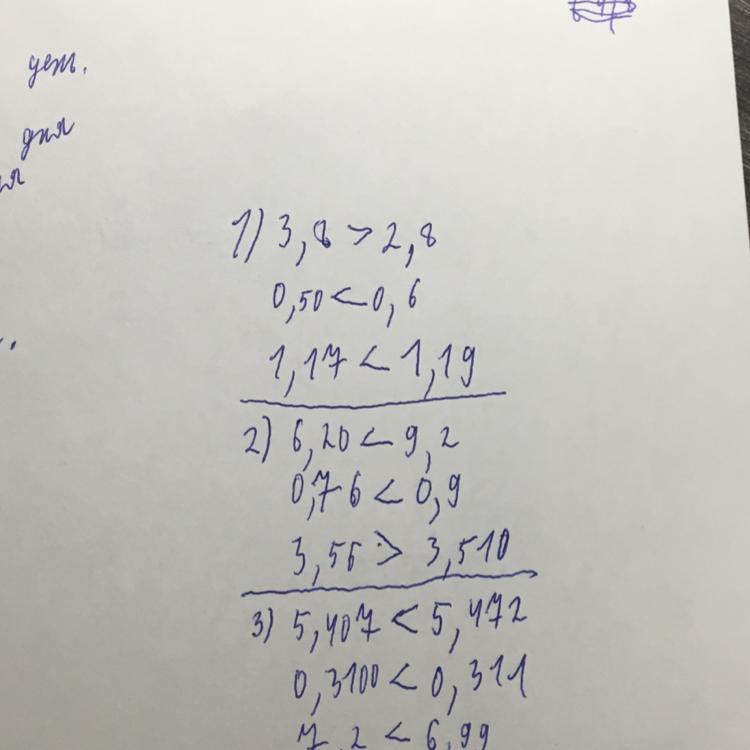 дет.
дня
1) 3,8 > 2,8
0,50 < 0,6
1,17 < 1,19
2) 6,20 < 9,2
0,76 < 0,9
3,55 > 3,510
3) 5,407 < 5,472
0,3100 < 0,311
7,2 < 6,99